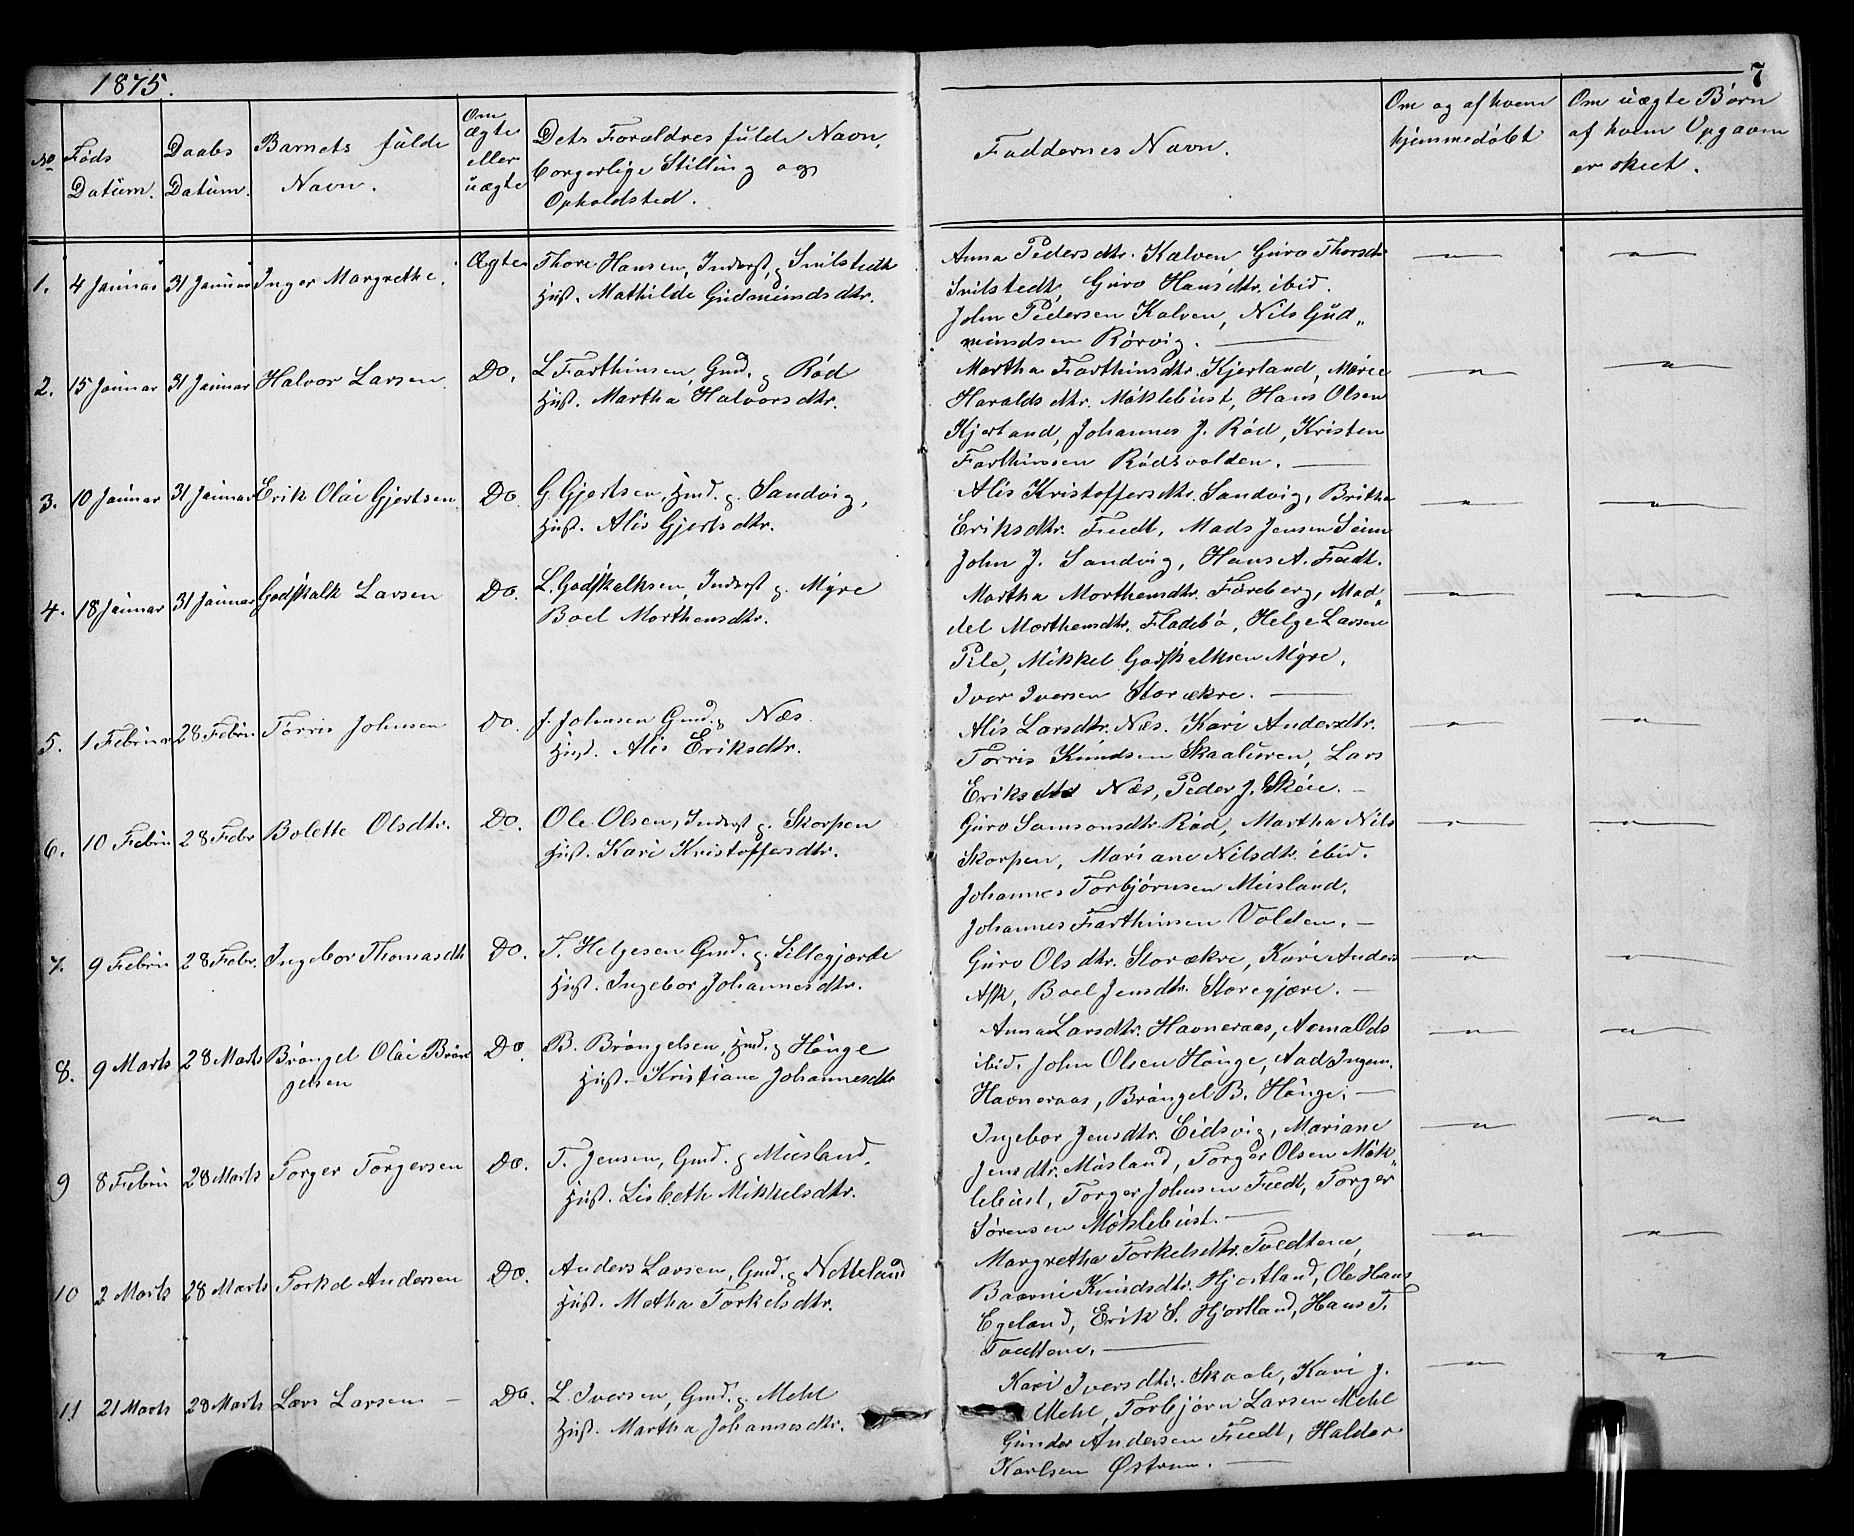 1875.
7
No
Føds Datum.
Daabs Datum.
Barnets fulde Navn.
Om ægte eller uægte
Dets Forældres fulde Navn, borgerlige Stilling og Opholdsted.
Faddernes Navn.
Om og af hvem hjemmedøbt
Om uægte Børn af hvem Opgaven er skeet.
1. 4 Januar 31 Januar Inger Margrethe. Ægte Thore Hansen, Inderst, g. Snilstedt
Hust. Mathilde Gudmundsdtr.
Anna Pedersdtr. Kalven Guro Thorsdtr
Snilstedt, Guro Hansdtr. ibid.
John Pedersen Kalven, Nils Gud„
mundsen Rørvig. —
2. 15 Januar 31 Januar Halvor Larsen. Do. L Farthinsen, Gmd. g Rød
Hust. Martha Halvorsdtr.
Martha Farthinsdtr. Kjerland, Marie
Haralds dtr. Møklebust, Hans Olsen
Kjerland, Johannes J. Rød, Kristen
Farthinsen Rødsvolden. —
3. 10 Januar 31 Januar Erik Olai Gjertsen Do. G Gjertsen, Hmd. g. Sandvig,
Hust. Alis Gjertsdtr.
Alis Kristoffersdtr. Sandvig, Britha
Eriksdtr. Tvedt, Mads Jensen Seim
John J. Sandvig, Hans A. Tvedt.
4. 18 Januar 31 Januar Godskalk Larsen Do. L. Godskalksen, Inderst g. Myre
Boel Morthensdtr.
Martha Morthensdtr. Føreberg, Mad„
del Morthensdtr. Fladebø, Helge Larsen
Pile, Mikkel Godskalksen Myre,
Iver Iversen Storækre. —
5. 1 Februar 28 Febru Tørris Johnsen Do. J. Johnsen Gmd. g Næs.
Hust. Alis Eriksdtr.
Alis Larsdtr. Næs. Kari Andersdtr.
Tørris Knudsen Skaaluren, Lars
Næs, Peder J. Skeie. —
6. 10 Febru 28 Febr Bolette Olsdtr. Do. Ole Olsen, Inderst g. Skorpen
Hust. Kari Kristoffersdtr.
Guro Samsonsdtr. Rød, Martha Nils
Skorpen, Mariane Nilsdtr. ibid.
Johannes Torbjørnsen Musland,
Johannes Farthinsen Volden. —
7. 9 Febru 28 Febr. Ingebor Thomasdtr Do. T. Helgesen Gmd. g. Lillegjærde
Hust. Ingebor Johannesdtr.
Guro Olsdtr. Storækre, Kari Anders
Ask, Boel Jensdtr. Storegjære. —
8. 9 Marts 28 Marts Brøngel Olai Brøn
gelsen Do. B. Brøngelsen, Hmd. g Hønge
Hust. Kristiane Johannesdtr
Anna Larsdtr. Havneraas, Anna Ods
ibid. John Olsen Hønge, Aad Ingem.
Havneraas, Brøngel B. Hønge. —
9 8 Febru 28 Marts Torger Torgersen Do. T. Jensen, Gmd. g Musland,
Hust. Lisbeth Mikkelsdtr.
Ingebor Jensdtr. Eidsvig, Mariane
Jensdtr. Musland, Torger Olsen Møk„
lebust, Torger Johnsen Tvedt, Torger
Sørensen Møklebust. —
10 2 Marts 28 Marts Torkel Andersen Do. Anders Larsen, Gmd. g Netteland
Hust. Metha Torkelsdtr.
Margretha Torkelsdtr. Tvedtene,
Knudsdtr. Hjortland, Ole Hans
Egeland, Erik S. Hjortland, Hans T.
Tvedtene. —
11 21 Marts 28 Marts Lars Larsen — Do. L. Iversen, Gmd. g Mehl
Hust. Martha Johannesdtr.
Kari Iversdtr. Skaale, Kari J.
Mehl, Torbjørn Larsen Mehl
Gunder Andersen Tvedt, Haldor
Karlsen Østrem. —